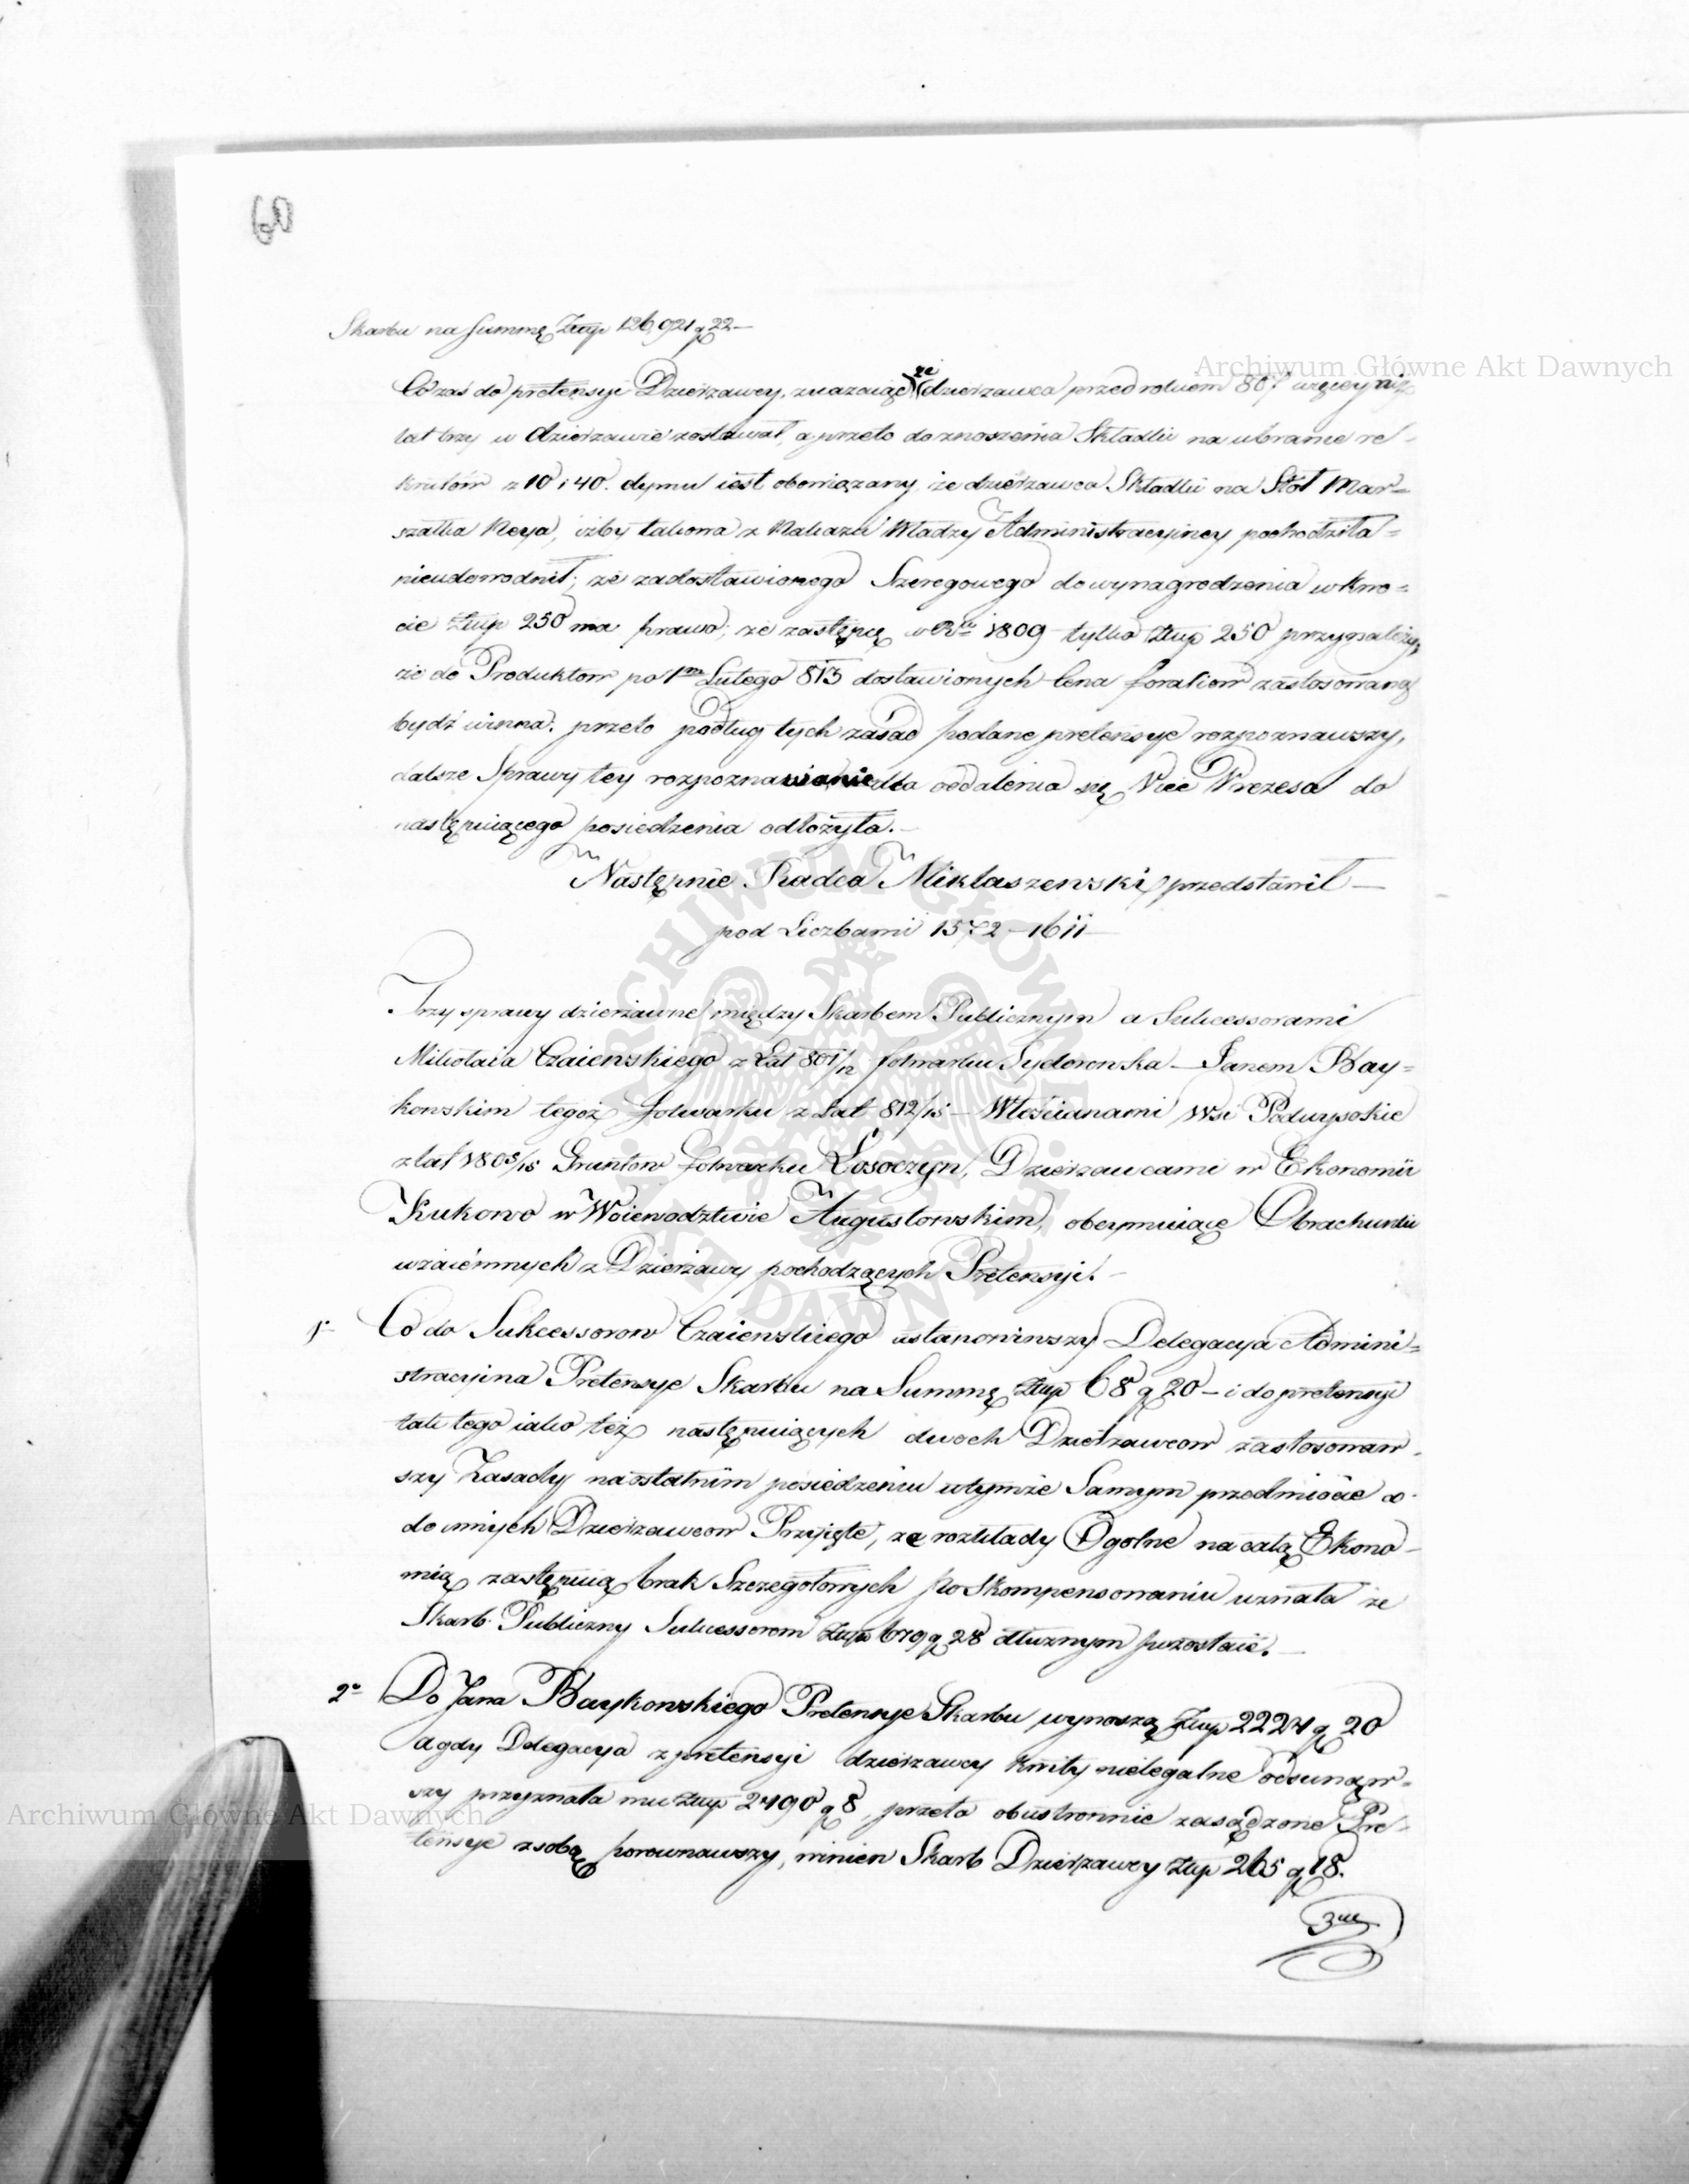 60
Skarbu na Summę Złup 126,921 g 22 —
Co zaś do pretensyi Dzierżawcy, zważaiąc że dzierżawca przed rokiem 807 więcey niż
lat trzy w dzierżawie zostawał, a przeto do znoszenia Składki na ubranie re-
krutów z 10 i 40. dymu iest obowiązany, że dzierżawca Składki na Stół Mar=
szałka Neya, iżby takowa z Nakazu Władzy Administracyiney pochodziła=
nieudowodnił; że za dostawionego Szeregowego do wynagrodzenia w kwo=
cie Złup 250 ma prawo; że zastępcę w 1809 tylko Złup 250 przynależy,
że do Produktow po 1m Lutego 813 dostawionych Cena foraliow zastosowaną
bydź winna; przeto podług tych zasad podane pretensye rozpoznawszy,
dalsze Sprawy tey rozpoznawanie dla oddalenia się Vice Prezesa do
następuiącego posiedzenia odłożyła. —
Następnie Radca Miklaszewski przedstawił —
pod Liczbami 1572 — 1611 —
Trzy sprawy dzierżawne między Skarbem Publicznym a Sukcessorami
Mikołaia Czaieńskiego z Lat 801/12 folwarku Sydorowska — Janem Bay=
kowskim tegoż folwarku z Lat 812/15 — Włościanami Wsi Podwysokie
z lat 1808/15 Gruntow folwarku Łosoczyn, Dzierzawcami w Ekonomii
Kukowo w Woiewodztwie Augustowskim, obeymuiące Obrachunki
wzaiemnych z Dzierżawy pochodzących Pretensyi. —
1o Co do Sukcessorow Czaieńskiego ustanowiwszy Delegacya Admini=
stracyina Pretensye Skarbu na Summę Złup 68 g 20 — i do pretensyi
tak tego iako też następuiących dwoch Dzierżawcow zastosowaw-
szy Zasady na ostatnim posiedzeniu w tymże Samym przedmiocie co
do innych Dzierżawcow Przyięte, że rozkłady Ogolne na całą Ekono-
mią zastępuią brak Szczegołowych po Skompensowaniu uznała że
Skarb Publiczny Sukcessorom Złup 679 g 28 dłużnym pozostaie. —
2o Do Jana Baykowskiego Pretensye Skarbu wynoszą Złup 2224 g 20
a gdy Delegacya z pretensyi dzierzawcy kwity nielegalne odsunąw=
szy przyznała mu Złup 2490 g 8, przeto obustronnie zasądzone Pre-
tensye z sobą porownawszy, winien Skarb Dzierżawcy Złup 265 g 18.
3cie
Archiwum Główne Akt Dawnych
Archiwum Główne Akt Dawnych